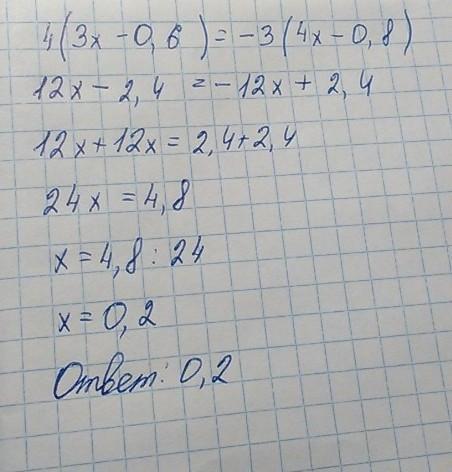 4(3x - 0,6) = -3(4x - 0,8)
12x - 2,4 = -12x + 2,4
12x + 12x = 2,4 + 2,4
24x = 4,8
x = 4,8 : 24
x = 0,2
Ответ: 0,2